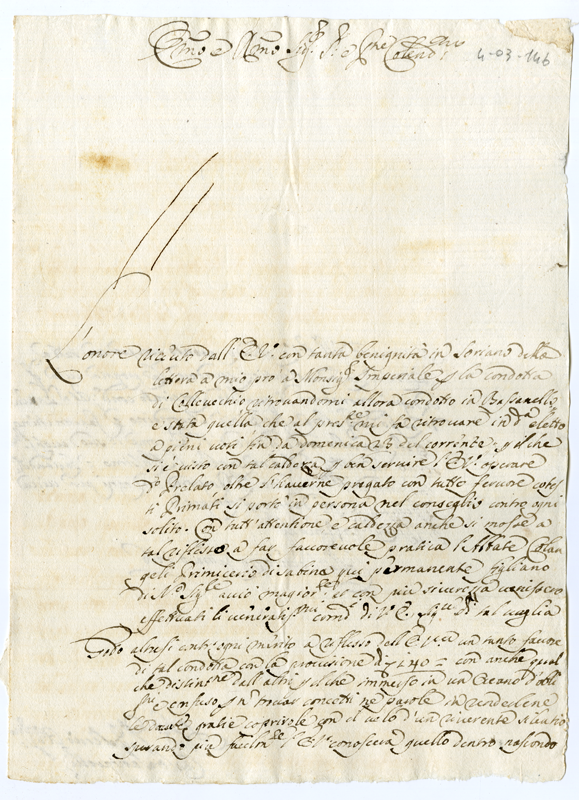 Em̃o e R̃mo Sig.r P.rone Colend.mo
4-03-146
L'onore riceuto dall' E.V. con tanta benignità in Soriano della
lettera a mio pro a Monsig.r Imperiale p la condotta
di Collevechio ritrovandomi allora condotto in Bassanello
è stata quella che al pres.te mi fa ritrovare in d.a eletto
a pieni voti sin da domenica 23 del corrente, p il che
si è visto con tal caldezza p ben servire l'E.V. operare
d.o Prelato oltre l'haverne pregato con tutto fervore
ti Primati si portò in persona nel conseglio contro ogni
solito. Con tutt'attentione e caldezza anche si mosse a
tal riflesso a far favorevole pratica l'Abbate Colan
geli Primicerio di Sabina qui permanente
di N. maggior et con più sicurezza venissero
effettuati li veneratis.mi com.di di V.E.
Godo altresi contr'ogni merito a riflesso dell' E. un tanto favore
di tal condotta con la provisione di 140 = con anche qual
che distint.ne dall'altre p il che immerso in un Oceano d'obli
confuso p n trovar concetti nè parole in renderlene
le dovute gratie coprirole con il velo d'un riverente silentio
sperando più l'E.V. conoscerà quello dentro nascondo